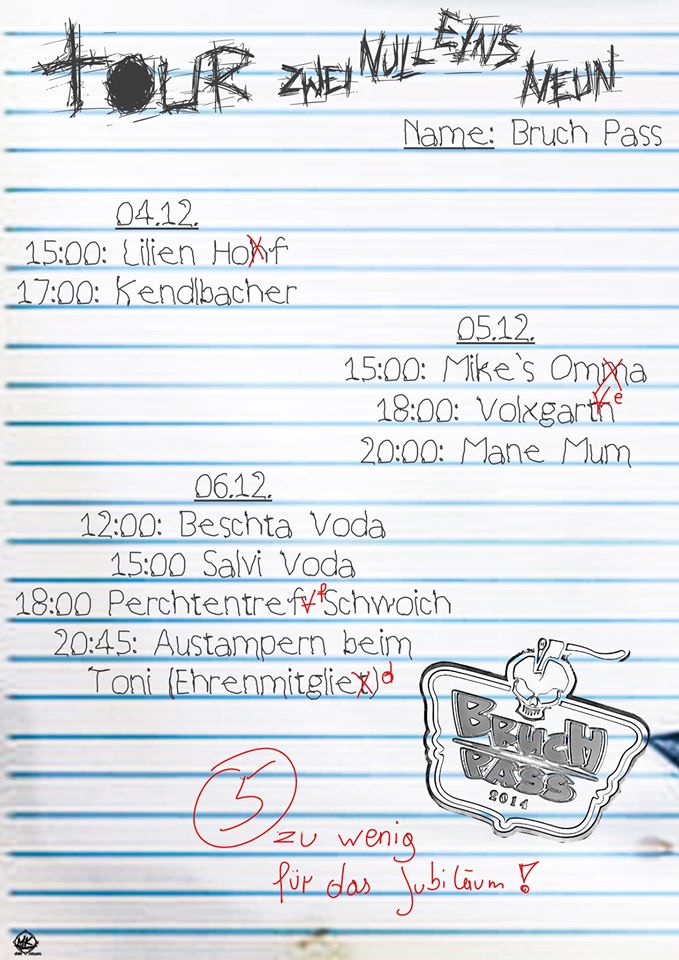 TOUR ZWEI NULL EYNS NEUN
Name: Bruch Pass
04.12.
15:00: Lilien Hohf
17:00: Kendlbacher
05.12.
15:00: Mike`s Omma
18:00: Volxgarth e
20:00: Mane Mum
06.12.
12:00: Beschta Voda
15:00 Salvi Voda
18:00 Perchtentref f Schwoich
20:45: Austampern beim
Toni (Ehrenmitgliet) d
BRUCH
PASS
2014
5
zu wenig
für das Jubiläum!
MK